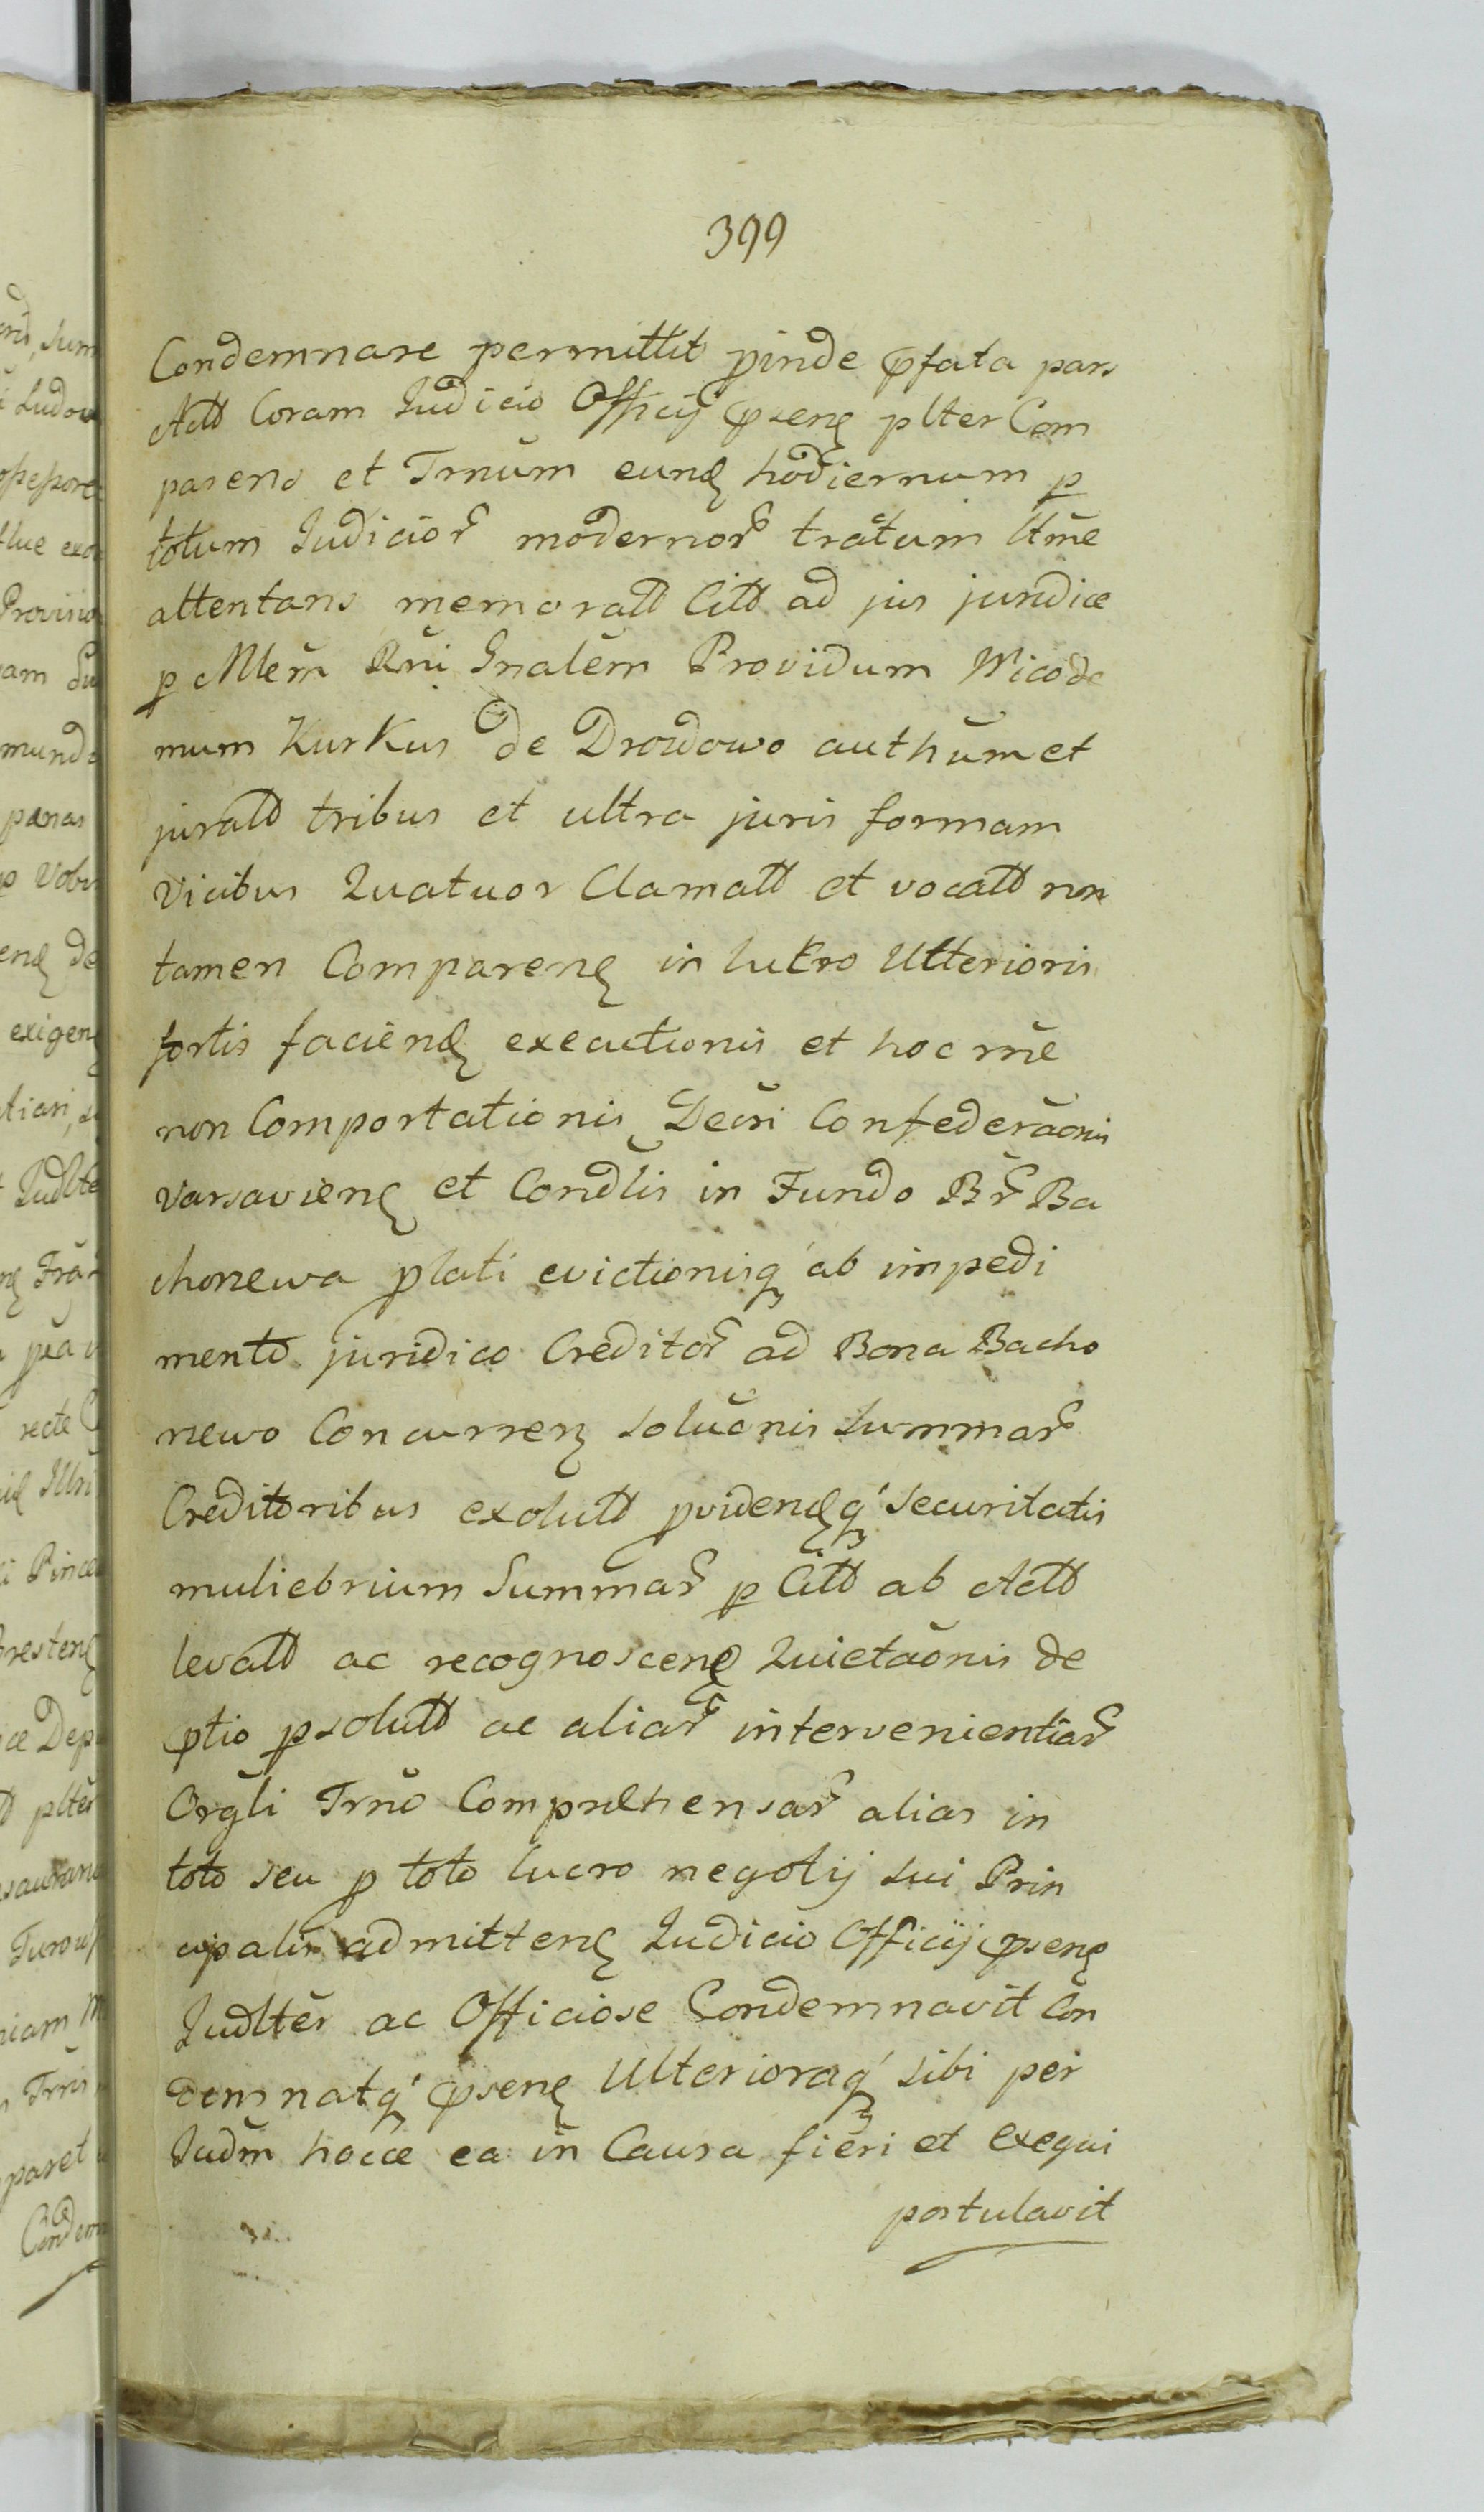 399
Condemnare permittit pinde pfata pars
Actt Coram Judicio Officij psenę plter Com
parens et Trnūm eunę hodiernum p
totum Judicior̃ modernor̃ tratum ltme
attentans memoratt Citt ad jus juridice
p Mlem Rni Gnalem Providum Nicode
mum Kurkus de Drozdowo authūm et
juratt tribus et ultra juris formam
Vicibus Quatuor Clamatt et vocatt non
tamen Comparenę in lukro Ulterioris
fortis faciēnę executionis et hoc rñe
non Comportationis Decri Confederāonis
varsavienę et Condlis in Fundo Br̃ Ba
chonewa plati evictionisq ab impedi
mento juridico Creditor̃ ad Bona Bacho
newo Concurrenę soluonis summar̃
Creditoribus exolutt pvidenęq securitatis
muliebrium Summar̃ p Citt ab Actt
levatt ac recognoscenę Quietāonis de
ptio psolutt ac aliar̃ intervenientiar̃
Orgli Trnō Comprehensar̃ alias in
toto seu p toto lucro negotij sui Prin
cipalis admittenę Judicio Officij psenę
Judlter ac Officiose Condemnavit Con
demnatq psenę Ulterioraq sibi per
Judm hocce ea in Causa fieri et exequi
postulavit